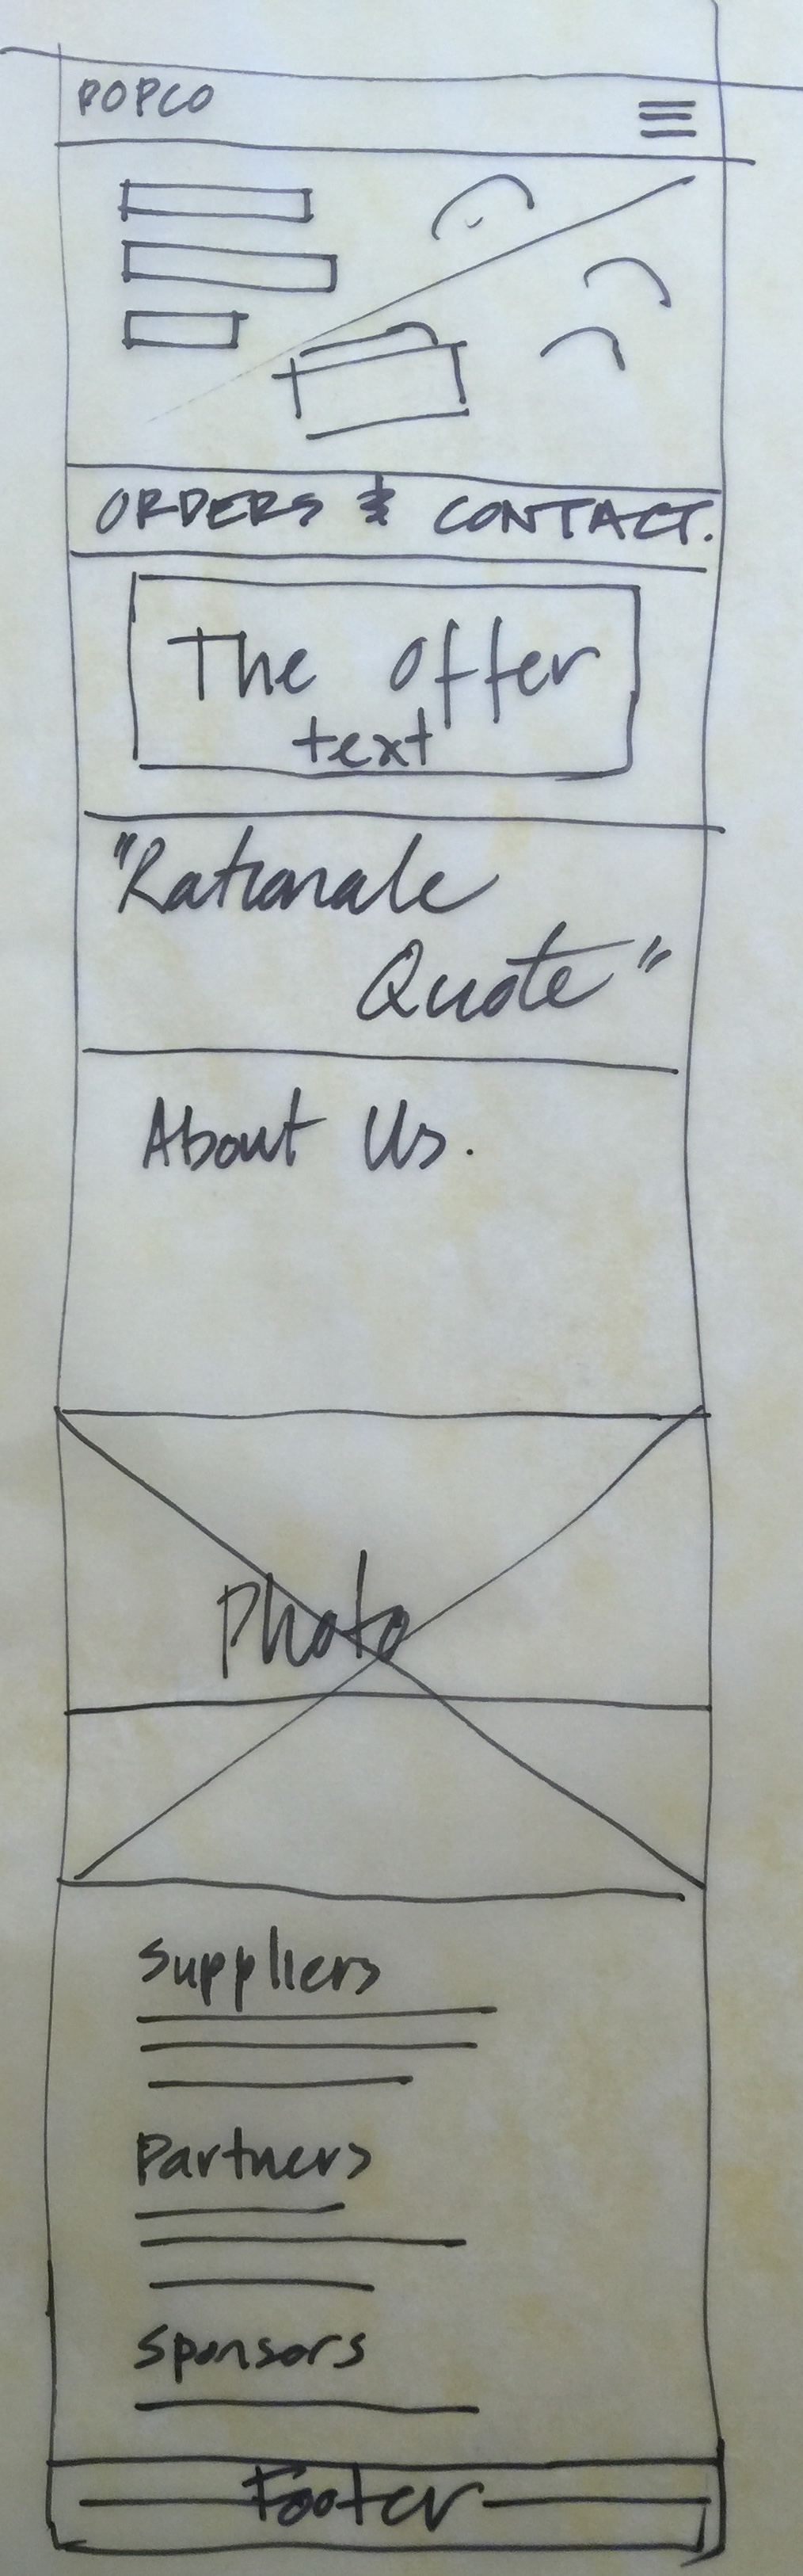 POPCO
ORDERS & CONTACT.
The Offer
text
"Rationale
Quote"
About Us.
Photo
Suppliers
Partners
Sponsors
Footer